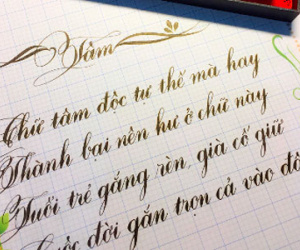 Tâm
Chữ tâm độc tự thế mà hay
Thành bại nên hư ở chữ này
Tuổi trẻ gắng rèn, già cố giữ
Cuộc đời gắn trọn cả vào đâ